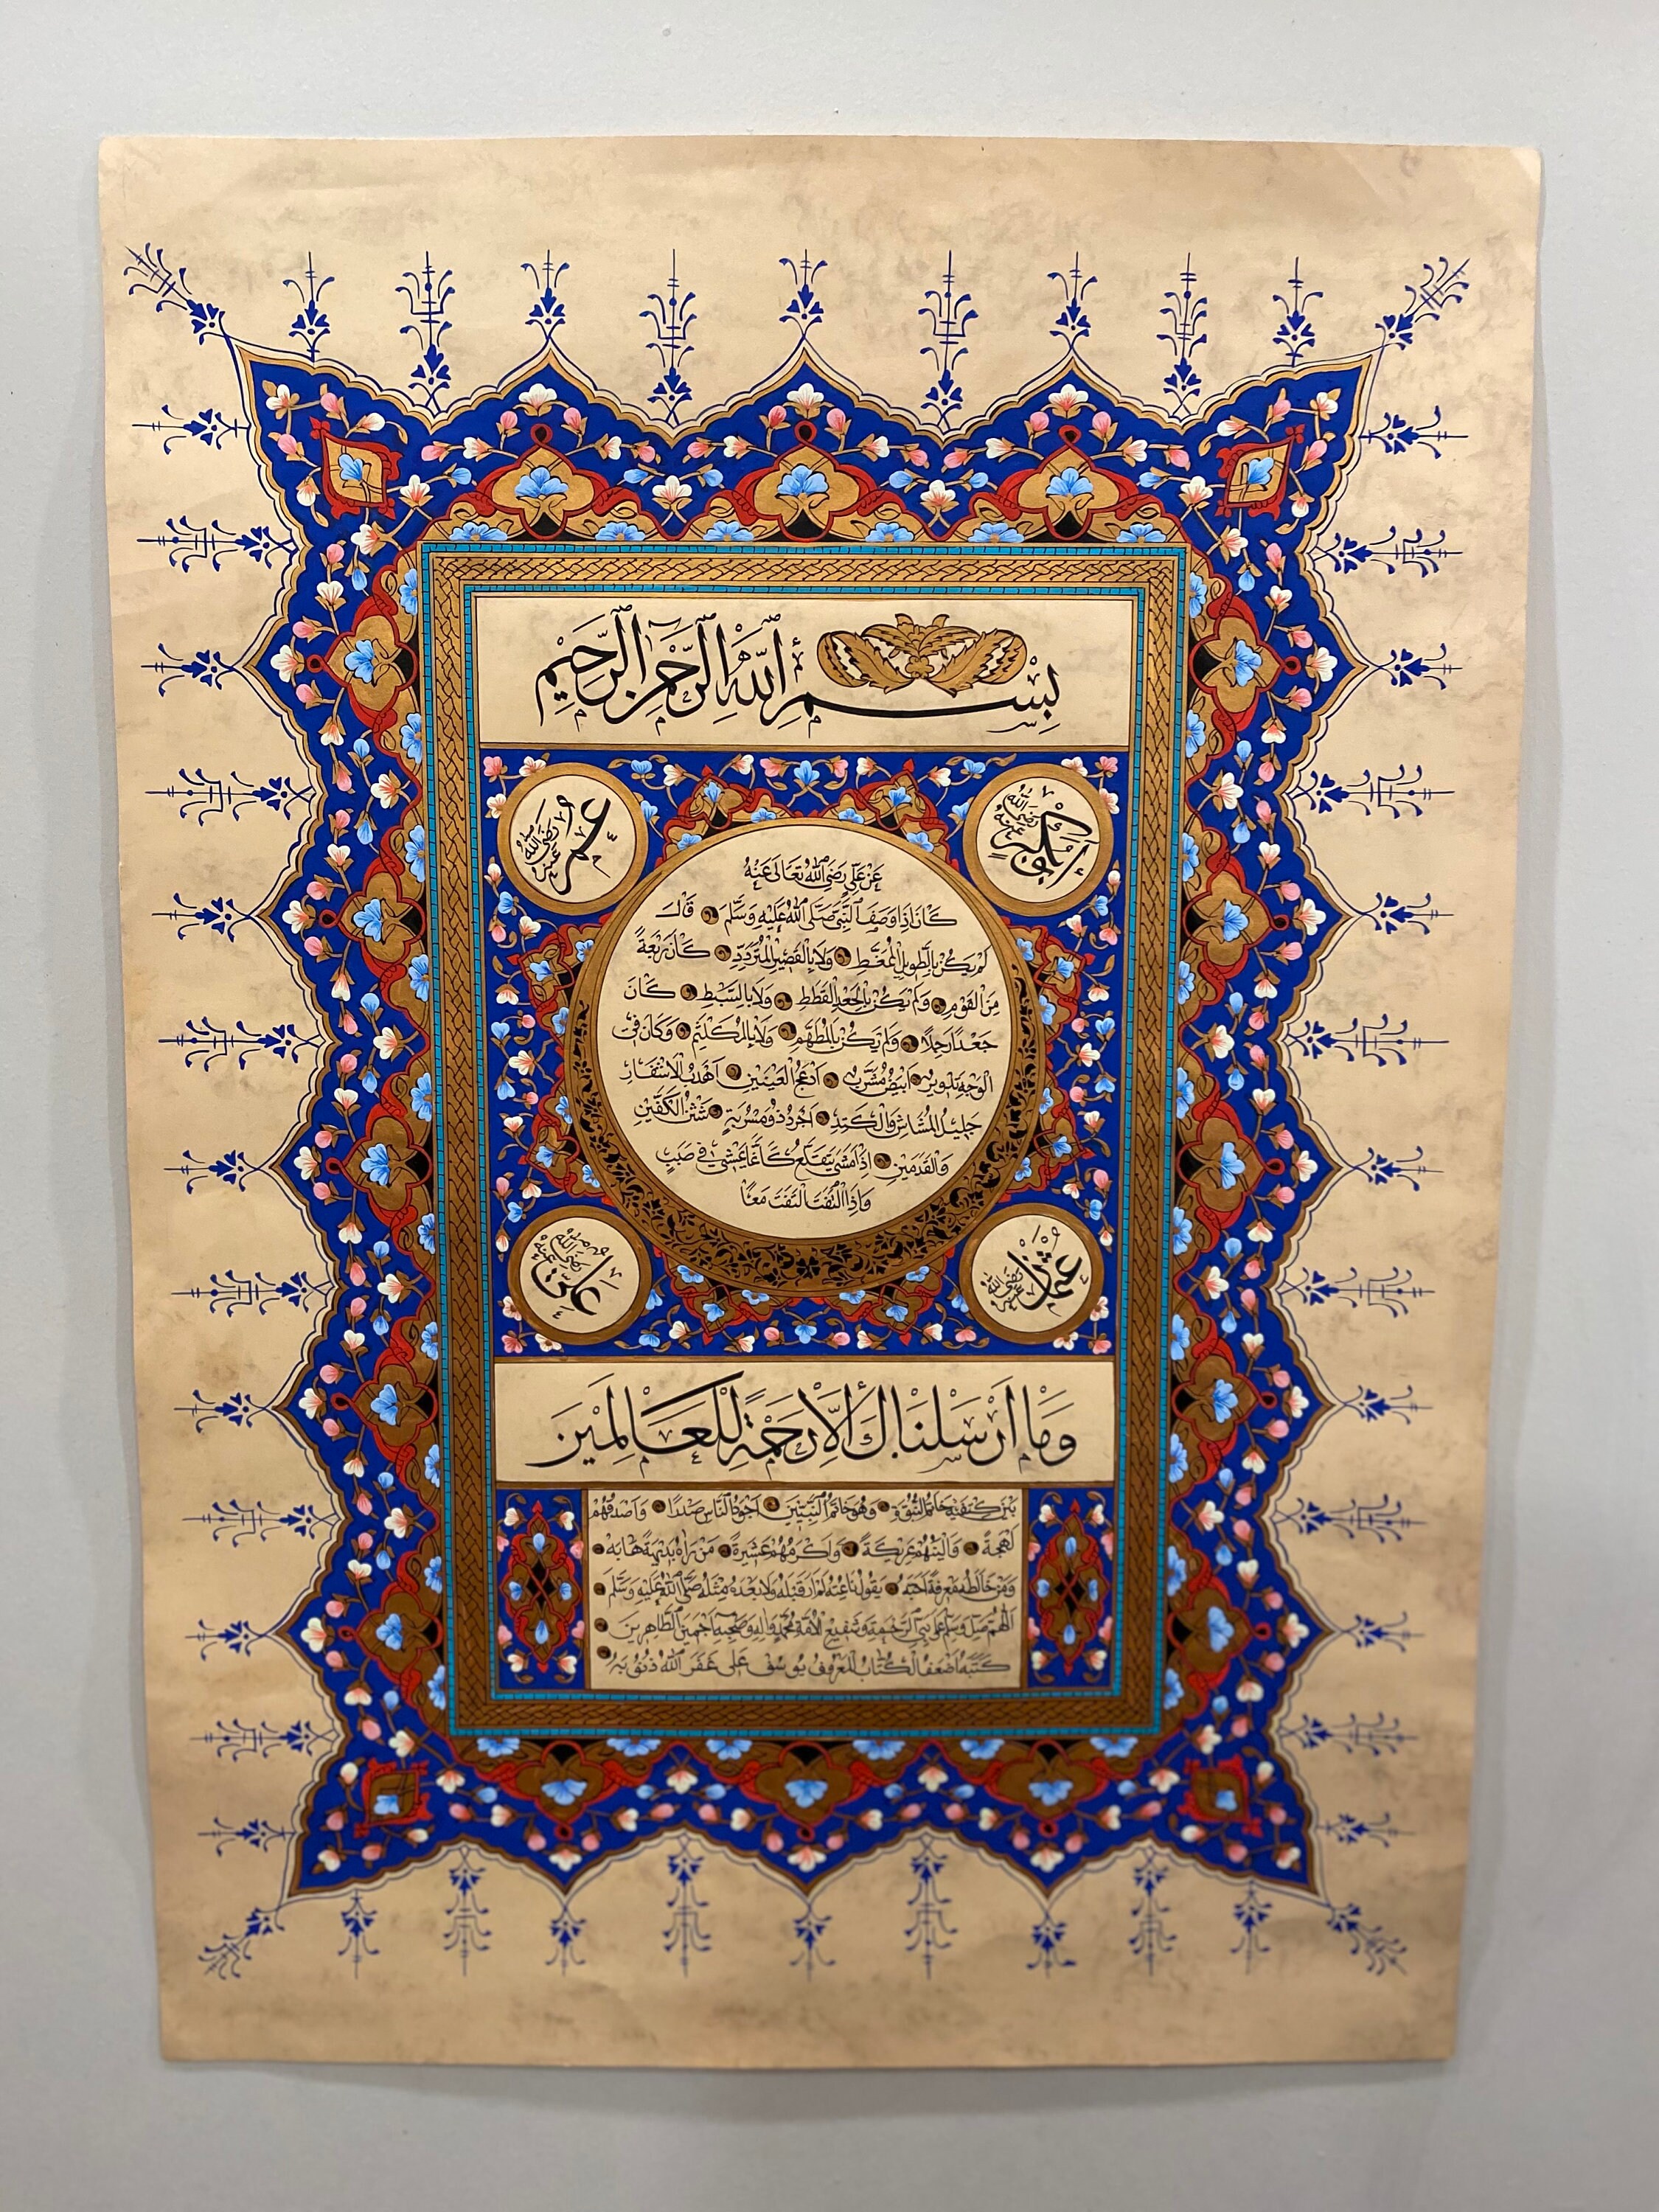 بِسْمِ اللّٰهِ الرَّحْمٰنِ الرَّحِيْمِ
ابوبكر رضى الله عنه
عمر رضى الله عنه
عَنْ عَلِيٍّ رَضِيَ اللّٰهُ تَعَالَى عَنْهُ
كَانَ اِذَا وَصَفَ النَّبِيَّ صَلَّى اللّٰهُ عَلَيْهِ وَسَلَّمَ قَالَ
لَمْ يَكُنْ بِالطَّوِيلِ الْمُمَغَّطِ وَلَا بِالْقَصِيرِ الْمُتَرَدِّدِ كَانَ رَبْعَةً
مِنَ الْقَوْمِ وَلَمْ يَكُنْ بِالْجَعْدِ الْقَطَطِ وَلَا بِالسَّبْطِ كَانَ
جَعْدًا رَجِلًا وَلَمْ يَكُنْ بِالْمُطَهَّمِ وَلَا بِالْمُكَلْثَمِ وَكَانَ فِي
الْوَجْهِ تَدْوِيرٌ اَبْيَضُ مُشْرَبٌ اَدْعَجُ الْعَيْنَيْنِ اَهْدَبُ الْاَشْفَارِ
جَلِيلُ الْمُشَاشِ وَالْكَتَدِ اَجْرَدُ ذُو مَسْرُبَةٍ شَثْنُ الْكَفَّيْنِ
وَالْقَدَمَيْنِ اِذَا مَشَى يَتَقَلَّعُ كَاَنَّمَا يَمْشِي فِي صَبَبٍ
وَاِذَا الْتَفَتَ الْتَفَتَ مَعًا
عثمان رضى الله عنه
على رضى الله عنه
وَمَا اَرْسَلْنَاكَ اِلَّا رَحْمَةً لِلْعَالَمِيْنَ
بَيْنَ كَتِفَيْهِ خَاتَمُ النُّبُوَّةِ وَهُوَ خَاتَمُ النَّبِيِّينَ اَجْوَدُ النَّاسِ صَدْرًا وَاَصْدَقُهُمْ
لَهْجَةً وَاَلْيَنُهُمْ عَرِيكَةً وَاَكْرَمُهُمْ عَشِيرَةً مَنْ رَاٰهُ بَدِيهَةً هَابَهُ
وَمَنْ خَالَطَهُ مَعْرِفَةً اَحَبَّهُ يَقُولُ نَاعِتُهُ لَمْ اَرَ قَبْلَهُ وَلَا بَعْدَهُ مِثْلَهُ صَلَّى اللّٰهُ عَلَيْهِ وَسَلَّمَ
اَللّٰهُمَّ صَلِّ وَسَلِّمْ عَلَى نَبِيِّ الرَّحْمَةِ وَشَفِيعِ الْاُمَّةِ مُحَمَّدٍ وَاٰلِهِ وَصَحْبِهِ اَجْمَعِينَ الطَّاهِرِينَ
كَتَبَهُ اَضْعَفُ الْكُتَّابِ الْمَعْرُوفُ يُوسُفُ عَلَى غَفَرَ اللّٰهُ ذُنُوبَهُ